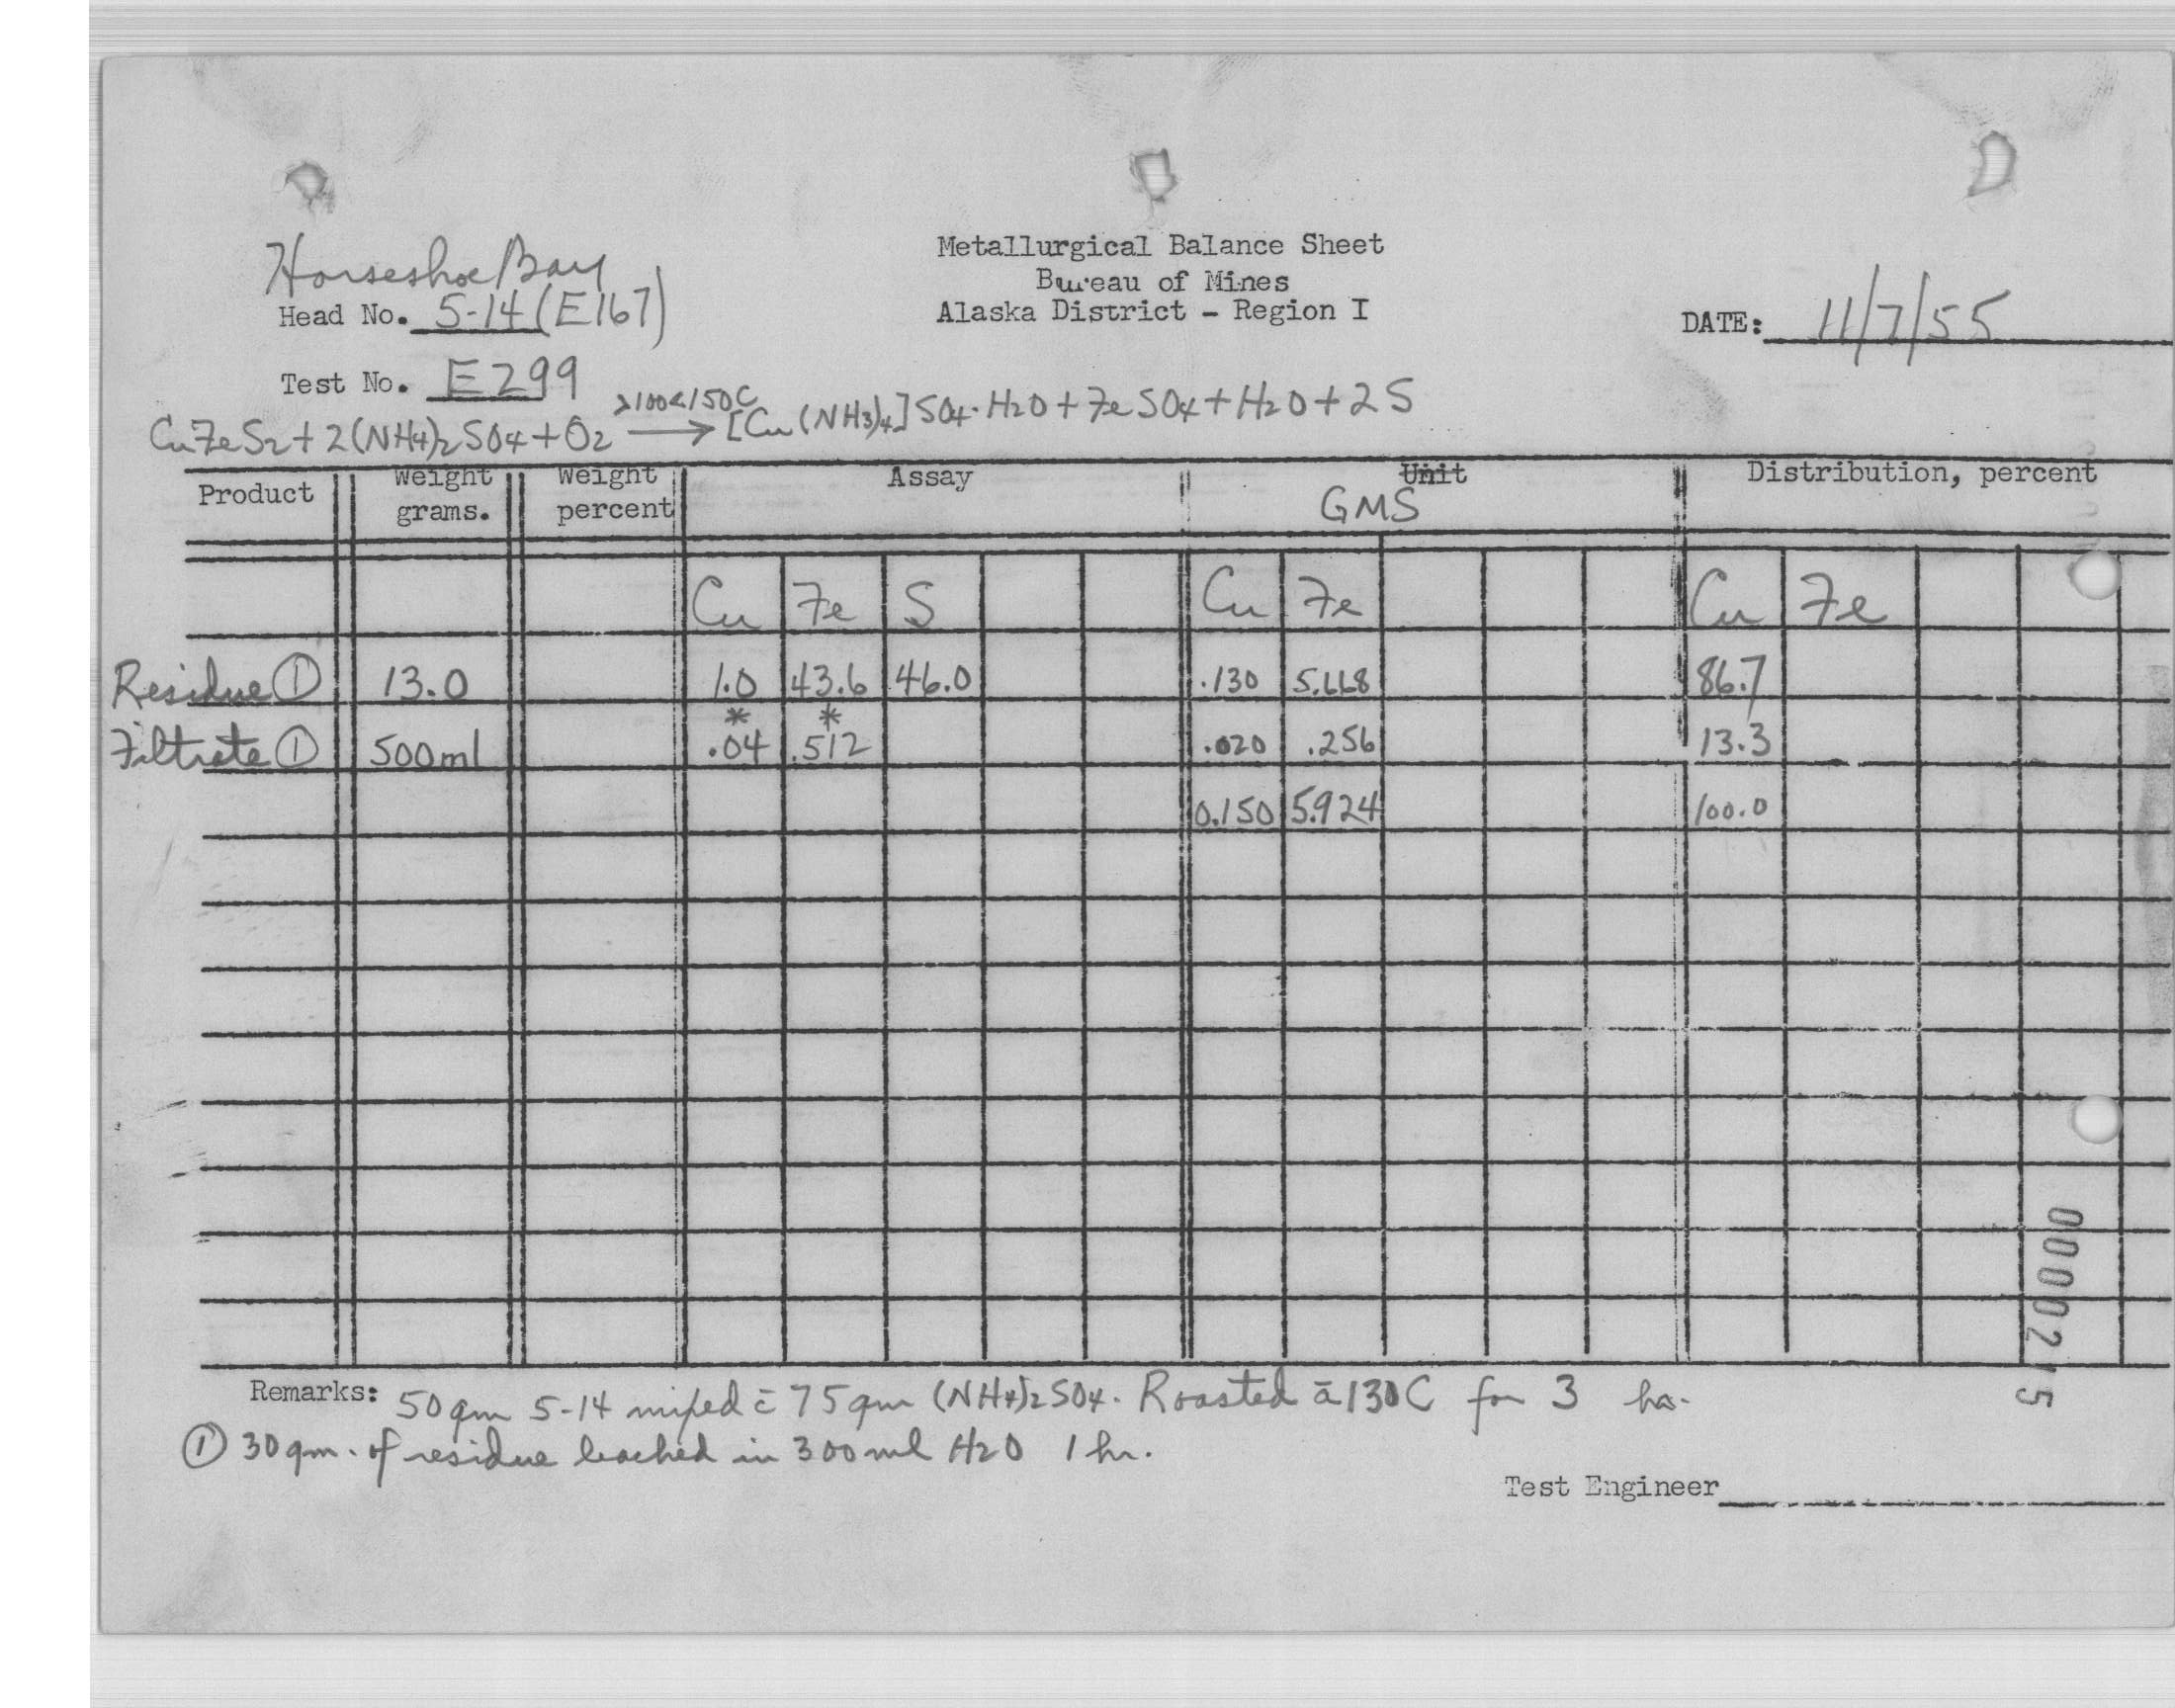 Metallurgical Balance Sheet
Bureau of Mines
Alaska District - Region I
Horseshoe Bay
Head No. 5-14 (E167)
DATE: 11/7/55
Test No. E299
>100<150C
CuFeS2 + 2(NH4)2SO4 + O2 → [Cu(NH3)4]SO4·H2O + FeSO4 + H2O + 2S
Product Weight grams. Weight percent Assay Unit GMS Distribution, percent
Cu Fe S Cu Fe Cu Fe
Residue ① 13.0 1.0 43.6 46.0 .130 5.668 86.7
* *
Filtrate ① 500ml .04 .512 .020 .256 13.3
0.150 5.924 100.0
Remarks: 50gm 5-14 mixed c̄ 75gm (NH4)2SO4. Roasted ā 130C for 3 hrs.
① 30gm. of residue leached in 300ml H2O 1 hr.
Test Engineer